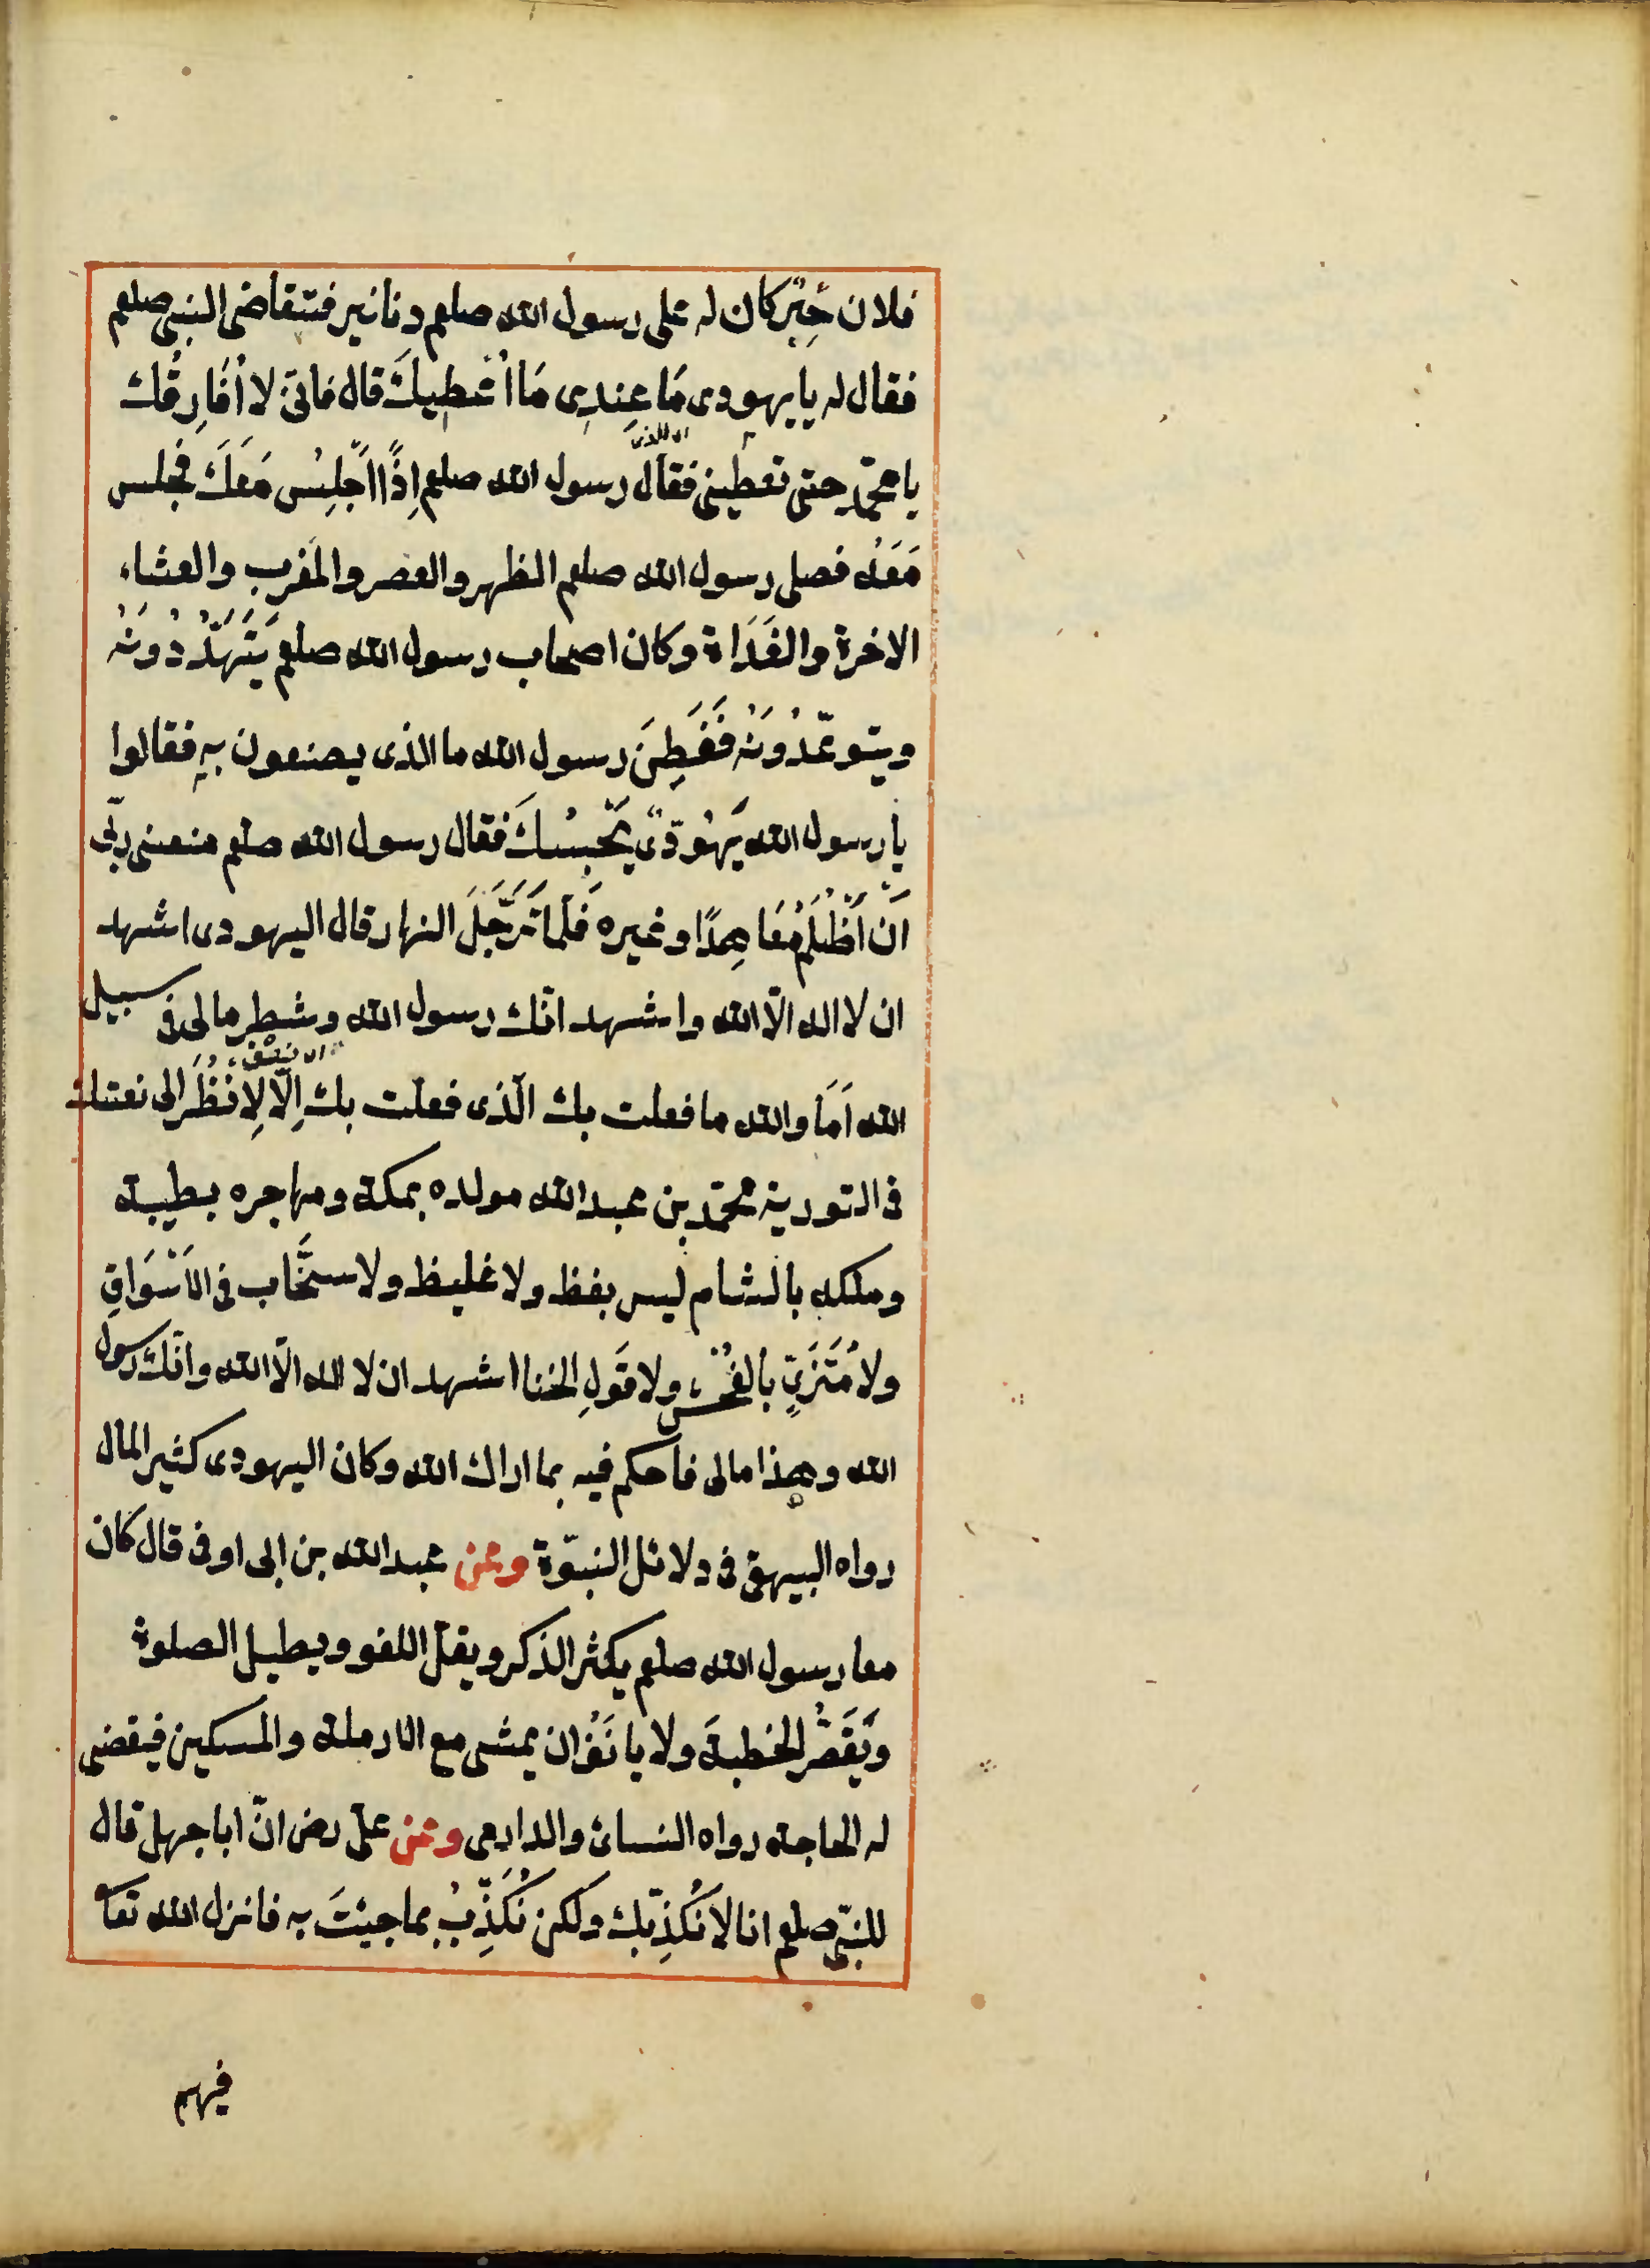 فلان حِبْر كان له على رسول الله صلعم دنانير فتتقاضى النبى صلعم
فقال له يا يهودى مَا عِنْدِى مَا اُعْطِيكَ قال فانّى لا اُفَارِقُك
يا محمّد حتى تعطينى فقال رسول الله صلعم اِذًا اَجْلِسُ مَعَكَ فجلس
مَعَهُ فصلى رسول الله صلعم الظهر والعصر والمغرب والعشاء
الاخرة والغَدَاة وكان اصحاب رسول الله صلعم يَتَهَدَّدُونَهُ
ويتوعّدُونَهُ فَفَطِنَ رسول الله ما الذى يصنعون بِهِ فقالوا
يا رسول الله يَهُودِىّ يَحْبِسُكَ فقال رسول الله صلعم منعنى ربّى
اَنْ اَظْلِمَ مُعَاهِدًا وغيره فَلَمَّا تَرَجَّلَ النهار قال اليهودى اشهد
ان لا اله الّا الله واشهد انّك رسول الله وشطر مالى فى سبيل
الله اَمَا والله ما فعلت بك الّذى فعلت بك اِلّا لِاَنْظُرَ الى نعتك
فى التورية محمّد بن عبد الله مولده بمكة ومهاجره بطيبة
وملكه بالشام ليس بفظ ولا غليظ ولا سخَّاب فى الاَسْوَاقِ
ولا مُتَزَىٍّ بالفُحْش ولا قَولِ الخنا اشهد ان لا اله الّا الله وانّك رسول
الله وهذا مالى فاحكم فيه بما اراك الله وكان اليهودى كثير المال
رواه البيهقى فى دلائل النبوّة وعن عبد الله بن ابى اوفى قال كان
معا رسول الله صلعم يكثر الذكر ويقلّ اللغو ويطيل الصلوة
وَيُقَصِّرُ الخطبةَ ولا يا نَفُ ان يمشى مع الارملة والمسكين فيقضى
له الحاجة رواه النسائ والدارمى وعن علىّ رض انّ ابا جهل قال
للنبّى صلعم انا لا نُكَذِّبك ولكن نُكَذِّبُ بما جِئتَ به فانزل الله تعا
فيهم